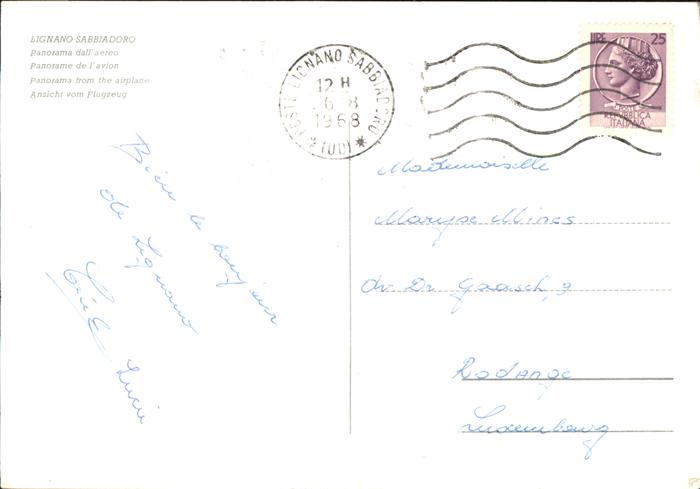 LIGNANO SABBIADORO
Panorama dall'aereo
Panorame de l'avion
Panorama from the airplane
Ansicht vom Flugzeug
POSTE LIGNANO SABBIADORO
12 H
6 8
1968
* (UD) *
LIRE 25
POSTE
REPVBBLICA
ITALIANA
Bien le bonjour
de Lignano
Lucie
Mademoiselle
Maryse Mines
av. Dr Gaasch, 9
Rodange
Luxembourg